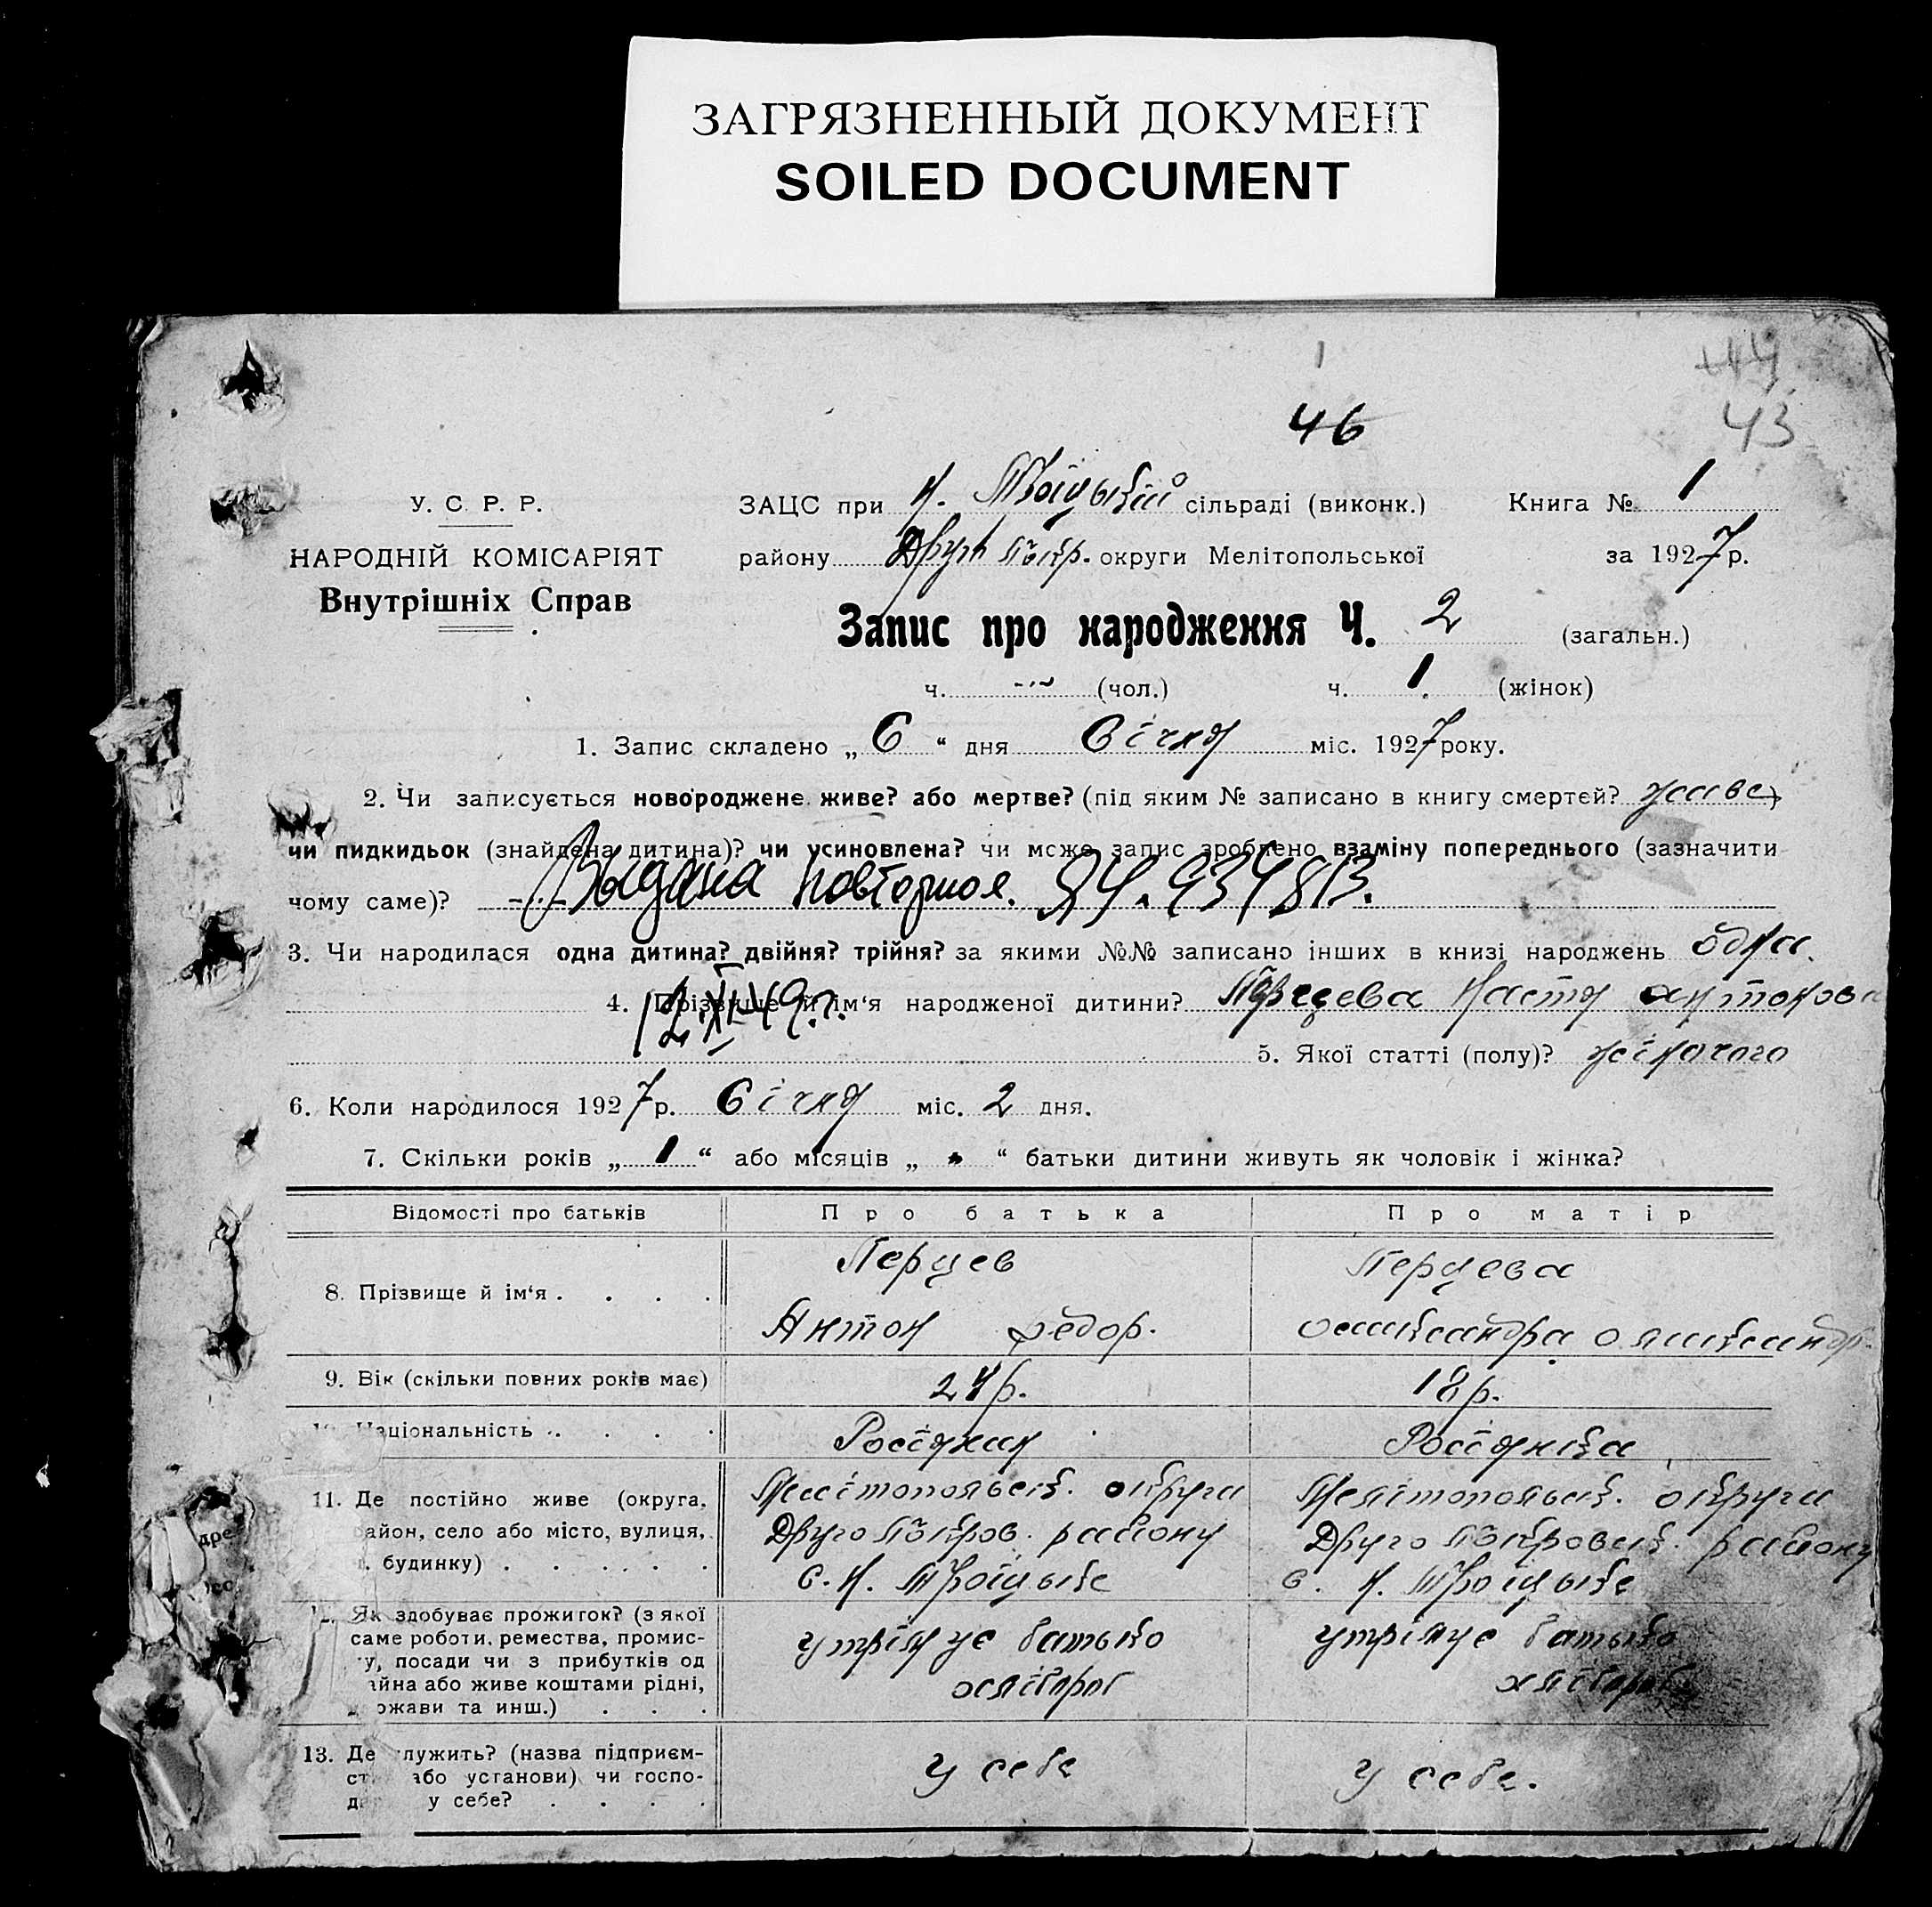 ЗАГРЯЗНЕННЫЙ ДОКУМЕНТ
SOILED DOCUMENT
1
44
46
43
У. С. Р. Р.
НАРОДНІЙ КОМІСАРІЯТ
Внутрішніх Справ
ЗАЦС при Н. Троїцькій сільраді (виконк.) Книга № 1
району Друго Покр. округи Мелітопольської за 1927 р.
Запис про народження Ч. 2 (загальн.)
ч. (чол.) ч. 1. (жінок)
1. Запис складено „ 6 “ дня Січня міс. 1927 року.
2. Чи записується новороджене живе? або мертве? (під яким № записано в книгу смертей? живе)
чи пидкидьок (знайдена дитина)? чи усиновлена? чи може запис зроблено взаміну попереднього (зазначити
чому саме)? Выдана повторное.
3. Чи народилася одна дитина? двійня? трійня? за якими №№ записано інших в книзі народжень одна.
4. Прізвище й ім‘я народженої дитини? Перцева Настя Антонова
12.XI-49 г.
5. Якої статті (полу)? жіночого
6. Коли народилося 1927 р. Січня міс. 2 дня.
7. Скільки років „ 1 “ або місяців „ “ батьки дитини живуть як чоловік і жінка?
Відомості про батьків Про батька Про матір
8. Прізвище й ім‘я . . . . Перцев Перцева
Антон Федор.
9. Вік (скільки повних років має) 24 р. 18 р.
Національність . . . . Росіянин Росіянка
11. Де постійно живе (округа, Мелітопольськ. округи Мелітопольськ. округи
район, село або місто, вулиця, Друго Покров. району Друго Покровськ. району
будинку) . . . . . с. Н. Троїцьке с. Н. Троїцьке
Як здобуває прожиток? (з якої
саме роботи, ремества, промис- утрімує батько утрімує батько
у, посади чи з прибутків од
айна або живе коштами рідні, хлібороб хлібороб
ожави та инш.) . . .
13. Де лужить? (назва підприєм-
ст або установи) чи госпо- у себе у себе.
да у себе? . . . .